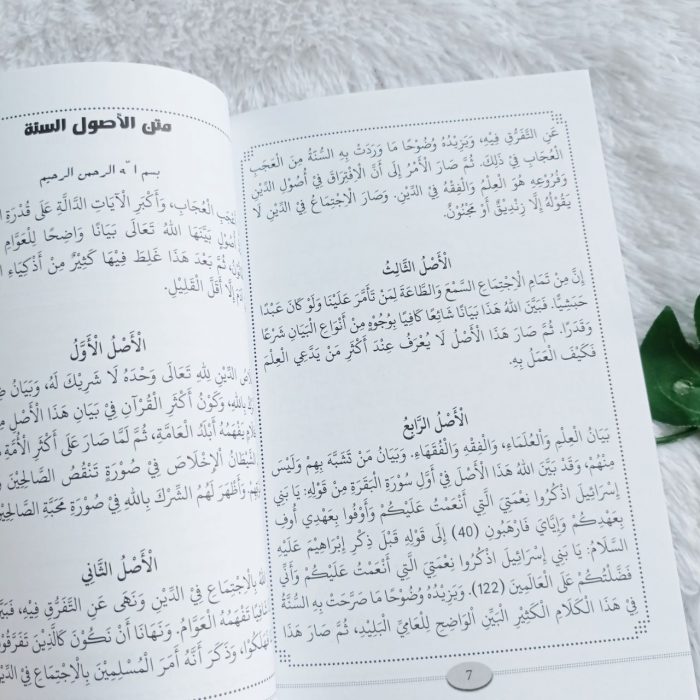 متن الأصول الستة
بسم الله الرحمن الرحيم
الْعُجَابِ، وَأَكْبَرِ الْآيَاتِ الدَّالَّةِ عَلَى قُدْرَةِ
أُصُولٍ بَيَّنَهَا اللهُ تَعَالَى بَيَانًا وَاضِحًا لِلْعَوَامِ
ثُمَّ بَعْدَ هَذَا غَلِطَ فِيْهَا كَثِيْرٌ مِنْ أَذْكِيَاءِ
إِلَّا أَقَلَّ الْقَلِيْلِ.
الْأَصْلُ الْأَوَّلُ
الدِّيْنِ لِلهِ تَعَالَى وَحْدَهُ لَا شَرِيْكَ لَهُ، وَبَيَانُ
بِاللهِ، وَكَوْنُ أَكْثَرِ الْقُرْآنِ فِيْ بَيَانِ هَذَا الْأَصْلِ مِنْ
يَفْهَمُهُ أَبْلَدُ الْعَامَّةِ، ثُمَّ لَمَّا صَارَ عَلَى أَكْثَرِ الْأُمَّةِ
الشَّيْطَانُ الْإِخْلَاصَ فِيْ صُوْرَةِ تَنَقُّصِ الصَّالِحِيْنَ
وَأَظْهَرَ لَهُمُ الشِّرْكَ بِاللهِ فِيْ صُوْرَةِ مَحَبَّةِ الصَّالِحِيْنَ
الْأَصْلُ الثَّانِي
اللهُ بِالْاِجْتِمَاعِ فِيْ الدِّيْنِ وَنَهَى عَنِ التَّفَرُّقِ فِيْهِ،
تَفْهَمُهُ الْعَوَّامُ. وَنَهَانَا أَنْ نَكُوْنَ كَالَّذِيْنَ تَفَرَّقُوْا
وَذَكَرَ أَنَّهُ أَمَرَ الْمُسْلِمِيْنَ بِالْاِجْتِمَاعِ فِيْ الدِّيْنِ
عَنِ التَّفَرُّقِ فِيْهِ، وَيَزِيْدُهُ وُضُوْحًا مَا وَرَدَتْ بِهِ السُّنَّةُ مِنَ الْعَجَبِ
الْعُجَابِ فِيْ ذَلِكَ. ثُمَّ صَارَ الْأَمْرُ إِلَى أَنَّ الْاِفْتِرَاقَ فِيْ أُصُوْلِ الدِّيْنِ
وَفُرُوْعِهِ هُوَ الْعِلْمُ وَالْفِقْهُ فِيْ الدِّيْنِ. وَصَارَ الْاِجْتِمَاعُ فِيْ الدِّيْنِ لَا
يَقُوْلُهُ إِلَّا زِنْدِيْقٌ أَوْ مَجْنُوْنٌ.
الْأَصْلُ الثَّالِثُ
إِنَّ مِنْ تَمَامِ الْاِجْتِمَاعِ السَّمْعَ وَالطَّاعَةَ لِمَنْ تَأَمَّرَ عَلَيْنَا وَلَوْ كَانَ عَبْدًا
حَبَشِيًّا. فَبَيَّنَ اللهُ هَذَا بَيَانًا شَائِعًا كَافِيًا بِوُجُوْهٍ مِنْ أَنْوَاعِ الْبَيَانِ شَرْعًا
وَقَدَرًا. ثُمَّ صَارَ هَذَا الْأَصْلُ لَا يُعْرَفُ عِنْدَ أَكْثَرِ مَنْ يَدَّعِي الْعِلْمَ
فَكَيْفَ الْعَمَلُ بِهِ.
الْأَصْلُ الرَّابِعُ
بَيَانُ الْعِلْمِ وَالْعُلَمَاءِ، وَالْفِقْهِ وَالْفُقَهَاءِ. وَبَيَانُ مَنْ تَشَبَّهَ بِهِمْ وَلَيْسَ
مِنْهُمْ، وَقَدْ بَيَّنَ اللهُ هَذَا الْأَصْلَ فِيْ أَوَّلِ سُوْرَةِ الْبَقَرَةِ مِنْ قَوْلِهِ: يَا بَنِي
إِسْرَائِيلَ اذْكُرُوا نِعْمَتِيَ الَّتِي أَنْعَمْتُ عَلَيْكُمْ وَأَوْفُوا بِعَهْدِي أُوفِ
بِعَهْدِكُمْ وَإِيَّايَ فَارْهَبُونِ (40) إِلَى قَوْلِهِ قَبْلَ ذِكْرِ إِبْرَاهِيمَ عَلَيْهِ
السَّلَامُ: يَا بَنِي إِسْرَائِيلَ اذْكُرُوا نِعْمَتِيَ الَّتِي أَنْعَمْتُ عَلَيْكُمْ وَأَنِّي
فَضَّلْتُكُمْ عَلَى الْعَالَمِينَ (122). وَيَزِيْدُهُ وُضُوْحًا مَا صَرَّحَتْ بِهِ السُّنَّةُ
فِيْ هَذَا الْكَلَامِ الْكَثِيْرِ الْبَيِّنِ الْوَاضِحِ لِلْعَامِيِّ الْبَلِيْدِ، ثُمَّ صَارَ هَذَا
7